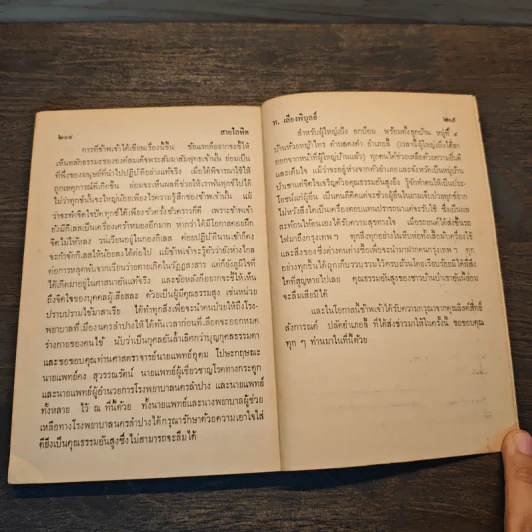 ๒๓๔ สายโลหิต
การที่ข้าพเจ้าได้เขียนเรื่องนี้ขึ้น ข้อแรกก็อยากจะชี้ให้
เห็นหลักธรรมะขององค์สมเด็จพระสัมมาสัมพุทธเจ้านั้น ย่อมเป็น
ที่พึ่งของมนุษย์ที่นำไปปฏิบัติอย่างแท้จริง เมื่อได้พิจารณาใช้ให้
ถูกเหตุการณ์ที่เกิดขึ้น ย่อมจะเห็นผลที่ช่วยให้เราพ้นทุกข์ไปได้
ไม่ว่าทุกข์นั้นจะใหญ่น้อยเพียงไรความรู้สึกของข้าพเจ้านั้น แม้
ว่าจะทำจิตใจปัดทุกข์ได้เพียงชั่วครั้งชั่วคราวก็ดี เพราะข้าพเจ้า
ยังมีกิเลสเป็นเครื่องเศร้าหมองอีกมาก หากว่าได้มีโอกาสถอนฝึก
จิตใจไม่ให้หลง วนเวียนอยู่ในกองกิเลส ต่อปฏิบัติผ่านเข้าก็คง
จะกำจัดกิเลสให้น้อยลงได้ต่อไป แม้ข้าพเจ้าจะรู้ตัวว่ายังห่างไกล
ต่อการหลุดพ้นจากเวียนว่ายตายเกิดในวัฏฏสงสาร แต่ก็ยังภูมิใจที่
ได้เกิดมาอยู่ในศาสนาอันแท้จริง และข้อหลังก็อยากจะชี้ให้เห็น
ถึงจิตใจของบุคคลผู้เสียสละ ด้วยเป็นผู้มีคุณธรรมสูง เช่นหน่วย
ปราบปรามไข้มาลาเรีย ได้ทำทุกสิ่งเพื่อจะนำคนป่วยให้ถึงโรง-
พยาบาลที่เมืองนครลำปางให้ได้ทันเวลาก่อนที่เลือดจะออกหมด
ร่างกายของคนไข้ นับว่าเป็นกุศลอันล้ำเลิศกว่าบุญกุศลธรรมดา
และขอขอบคุณท่านศาสตราจารย์นายแพทย์อุดม โปษะกฤษณะ
นายแพทย์คง สุวรรณรัตน์ นายแพทย์ผู้เชี่ยวชาญโรคทางกระดูก
และนายแพทย์ผู้อำนวยการโรงพยาบาลนครลำปาง และนายแพทย์
ทั้งหลาย ไว้ ณ ที่นี้ด้วย ทั้งนายแพทย์และนางพยาบาลผู้ช่วย
เหลือทางโรงพยาบาลนครลำปางได้กรุณารักษาด้วยความเอาใจใส่
ดียิ่งเป็นคุณธรรมอันสูงซึ่งไม่สามารถจะลืมได้
ท. เลียงพิบูลย์ ๒๓๕
สำหรับผู้ใหญ่เบ้ง ยกน้อม พร้อมทั้งลูกบ้าน หมู่ที่ ๙
บ้านห้วยหญ้าไทร ตำบลคงคำ อำเภอลี้ (เวลานี้ผู้ใหญ่เบ้งได้ลา
ออกจากหน้าที่ผู้ใหญ่บ้านแล้ว) ทุกคนได้ช่วยเหลือด้วยความยินดี
และเต็มใจ แม้ว่าจะอยู่ห่างจากตัวอำเภอและจังหวัดเป็นหมู่บ้าน
ป่าเขาแต่จิตใจเจริญด้วยคุณธรรมอันสูงยิ่ง รู้จักทำตนให้เป็นประ-
โยชน์แก่ผู้อื่น เป็นคนดีคิดแต่จะช่วยผู้อื่นในยามเจ็บปวดทุกข์ยาก
ไม่หวังสิ่งใดเป็นเครื่องตอบแทนปรารถนาแต่จะรับใช้ ซึ่งเป็นผล
สะท้อนให้ตนเองได้รับความสุขทางใจ เมื่อรถยนต์ได้ส่งขึ้นรถ
ไฟมาถึงกรุงเทพ ฯ ทุกสิ่งทุกอย่างในหีบห่อทั้งเสื้อผ้าเครื่องใช้
และสิ่งของ ซึ่งต่างคนต่างซื้อเพื่อจะนำมาฝากคนกรุงเทพ ฯ ทุก
อย่างทุกชิ้นได้ถูกเก็บรวบรวมไว้ครบถ้วนโดยเรียบร้อยมิได้มีสิ่ง
ใดที่สูญหายไปเลย คุณธรรมอันสูงของชาวบ้านป่าเขานั้นย่อม
จะลืมเสียมิได้
และในโอกาสนี้ข้าพเจ้าได้รับความกรุณาจากคุณลิตศักดิ์สิทธิ์
สังการณต์ ปลัดอำเภอลี้ ที่ได้ส่งข่าวมาให้ในครั้งนี้ ขอขอบคุณ
ทุก ๆ ท่านมาในที่นี้ด้วย